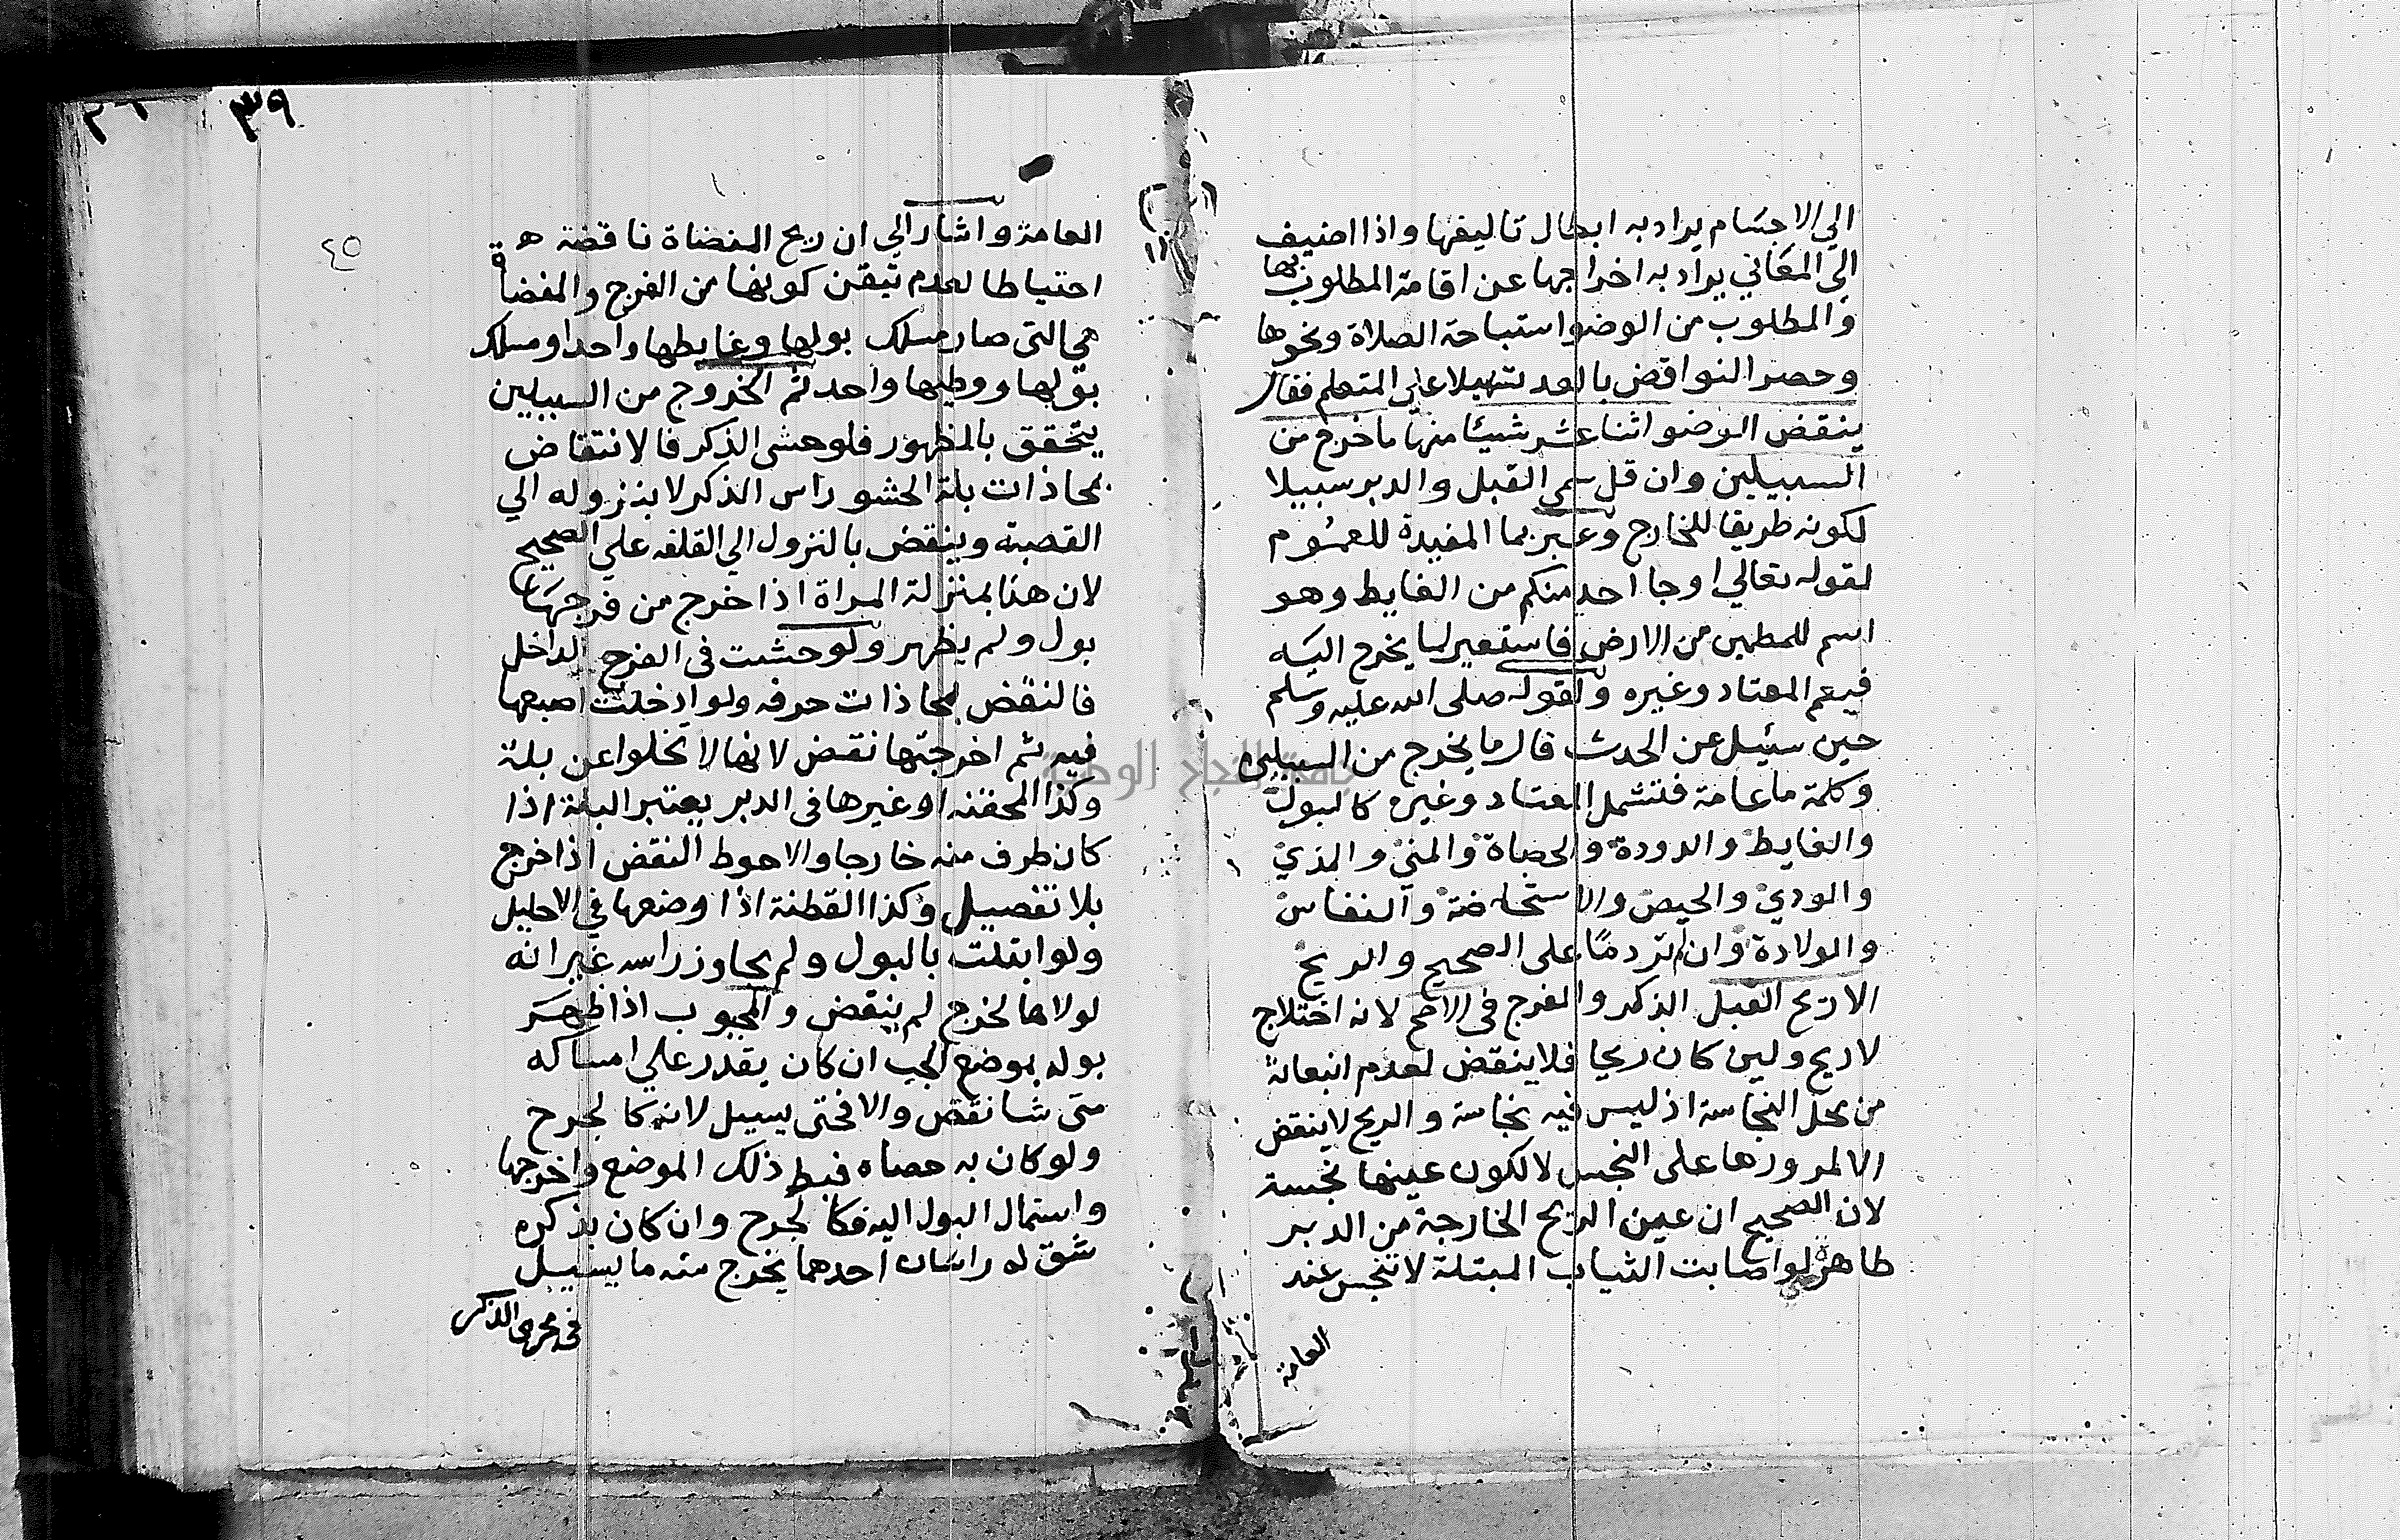 الي الاجسام يراد به ابطال تاليفها واذا اضيف
الي المعاني يراد به اخراجها عن اقامة المطلوب بها
والمطلوب من الوضوا ستباحة الصلاة ونحوها
وحصر النواقض بالعد تسهيلا علي المتعلم فقال
ينقض الوضو اثنا عشر شيئا منها ما خرج من
السبيلين وان قل سمي القبل والدبر سبيلا
لكونه طريقا للخارج وعبر بما المفيدة للعموم
لقوله تعالي او جا احد منكم من الغايط وهو
اسم للمطمين من الارض فاستعير لما يخرج اليه
فيعم المعتاد وغيره ولقوله صلى الله عليه وسلم
حين سئيل عن الحدث قال ما يخرج من السبيلين
وكلمة ما عامة فتشمل المعتاد وغيره كالبول
والغايط والدودة والحصاة والمني والمذي
والودي والحيض والاستحاضة والنفاس
والولادة وان لم تر دمًا على الصحيح والريح
الا ريح القبل الذكر والفرج فى الاصح لانه اختلاج
لا ريح ولين كان ريحا فلا ينقض لعدم انبعاثه
من محل النجاسة اذ ليس فيه نجاسة والريح لا ينقض
الا لمرورها على النجس لا لكون عينها نجسة
لان الصحيح ان عين الريح الخارجة من الدبر
طاهرة لو اصابت الثياب المبتلة لا تنجس عند
العامة
٣٩
٤٥
العامة واشار الي ان ريح المفضاة ناقضة
احتياطا لعدم تيقن كونها من الفرج والمفضاة
هي التى صار مسلك بولها وغايطها واحدا ومسلك
بولها ووطيها واحد ثم الخروج من السبيلين
يتحقق بالظهور فلو حشى الذكر فالانتقاض
بمحاذات بلة الحشو راس الذكر لا بنزوله الي
القصبة وينقض بالنزول الي القلفه علي الصحيح
لان هنا بمنزلة المراة اذا خرج من فرجها
بول ولم يظهر ولو حشت فى الفرج الداخل
فالنقض بمحاذات حرفه ولو ادخلت اصبعها
فيه ثم اخرجتها نقض لانها لا تخلوا عن بلة
وكذا المحقنه او غيرها فى الدبر يعتبر البلة اذا
كان طرف منه خارجا والاحوط النقض اذا خرج
بلا تفصيل وكذا القطنة اذا وضعها في الاحليل
ولو ابتلت بالبول ولم يجاوز راسه غير انه
لولاها لخرج لم ينقض والمجبوب اذا ظهر
بوله بموضع الجب ان كان يقدر علي امساكه
متى شا نقض والا فحتى يسيل لانه كالجرح
ولو كان به حصاه فبط ذلك الموضع واخرجها
واستمال البول اليه فكالجرح وان كان بذكره
شق له راسان احدهما يخرج منه ما يسيل
فى مجرى الذكر
جامعة النجاح الوطنية